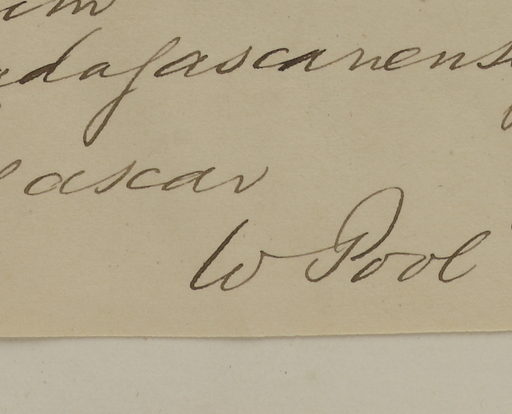 adagascarens
ascar
W Pool